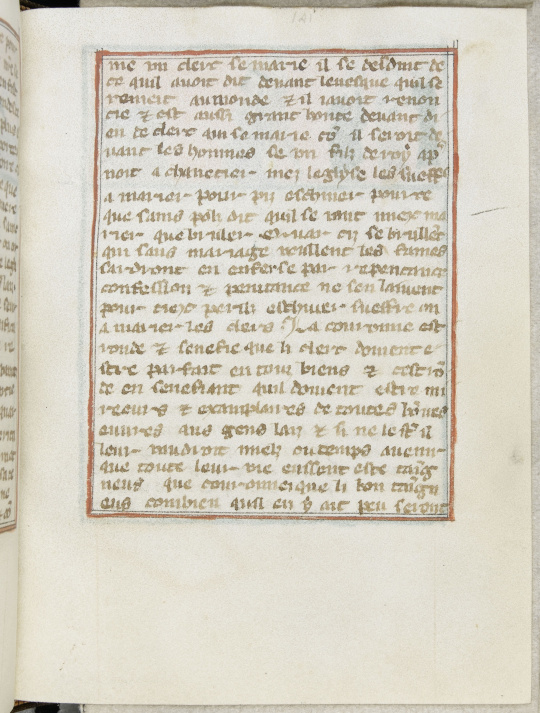 me un clerc se marie il se desdint de
ce quil avoit dit devant levesque quil se
reméit au monde et il lavoit renon
cie et est aussi grant honte devant di
eu de clerc qui se marie cõ il seroit de
vant les hommes se un filz de roy apͬ
noit a chavetier mez leglyse les sueffre
a marier pour pis eschiver pour ce
que sains pol dit quil se vaut miex ma
rier que bruler car cil se brullẽt
qui sans mariage veullent les fames
sardront en enfer se par repentance
confession et penitance ne sen lavent
pour ciex peril eschiver sueffre on
a marier les clers La couronne est
ronde et senefie que li clerc doivent e
stre parfait en tous biens et cest rõ
de en senefiant quil doivent estre mi
reours et examplaires de toutes bõnes
euvres aus gens lais et si ne le sͭ il
leur vaudroit miex ou temps avenir
que toute leur vie eussent este
neus que couronne que li bon
eus combien quil en y ait peu seront